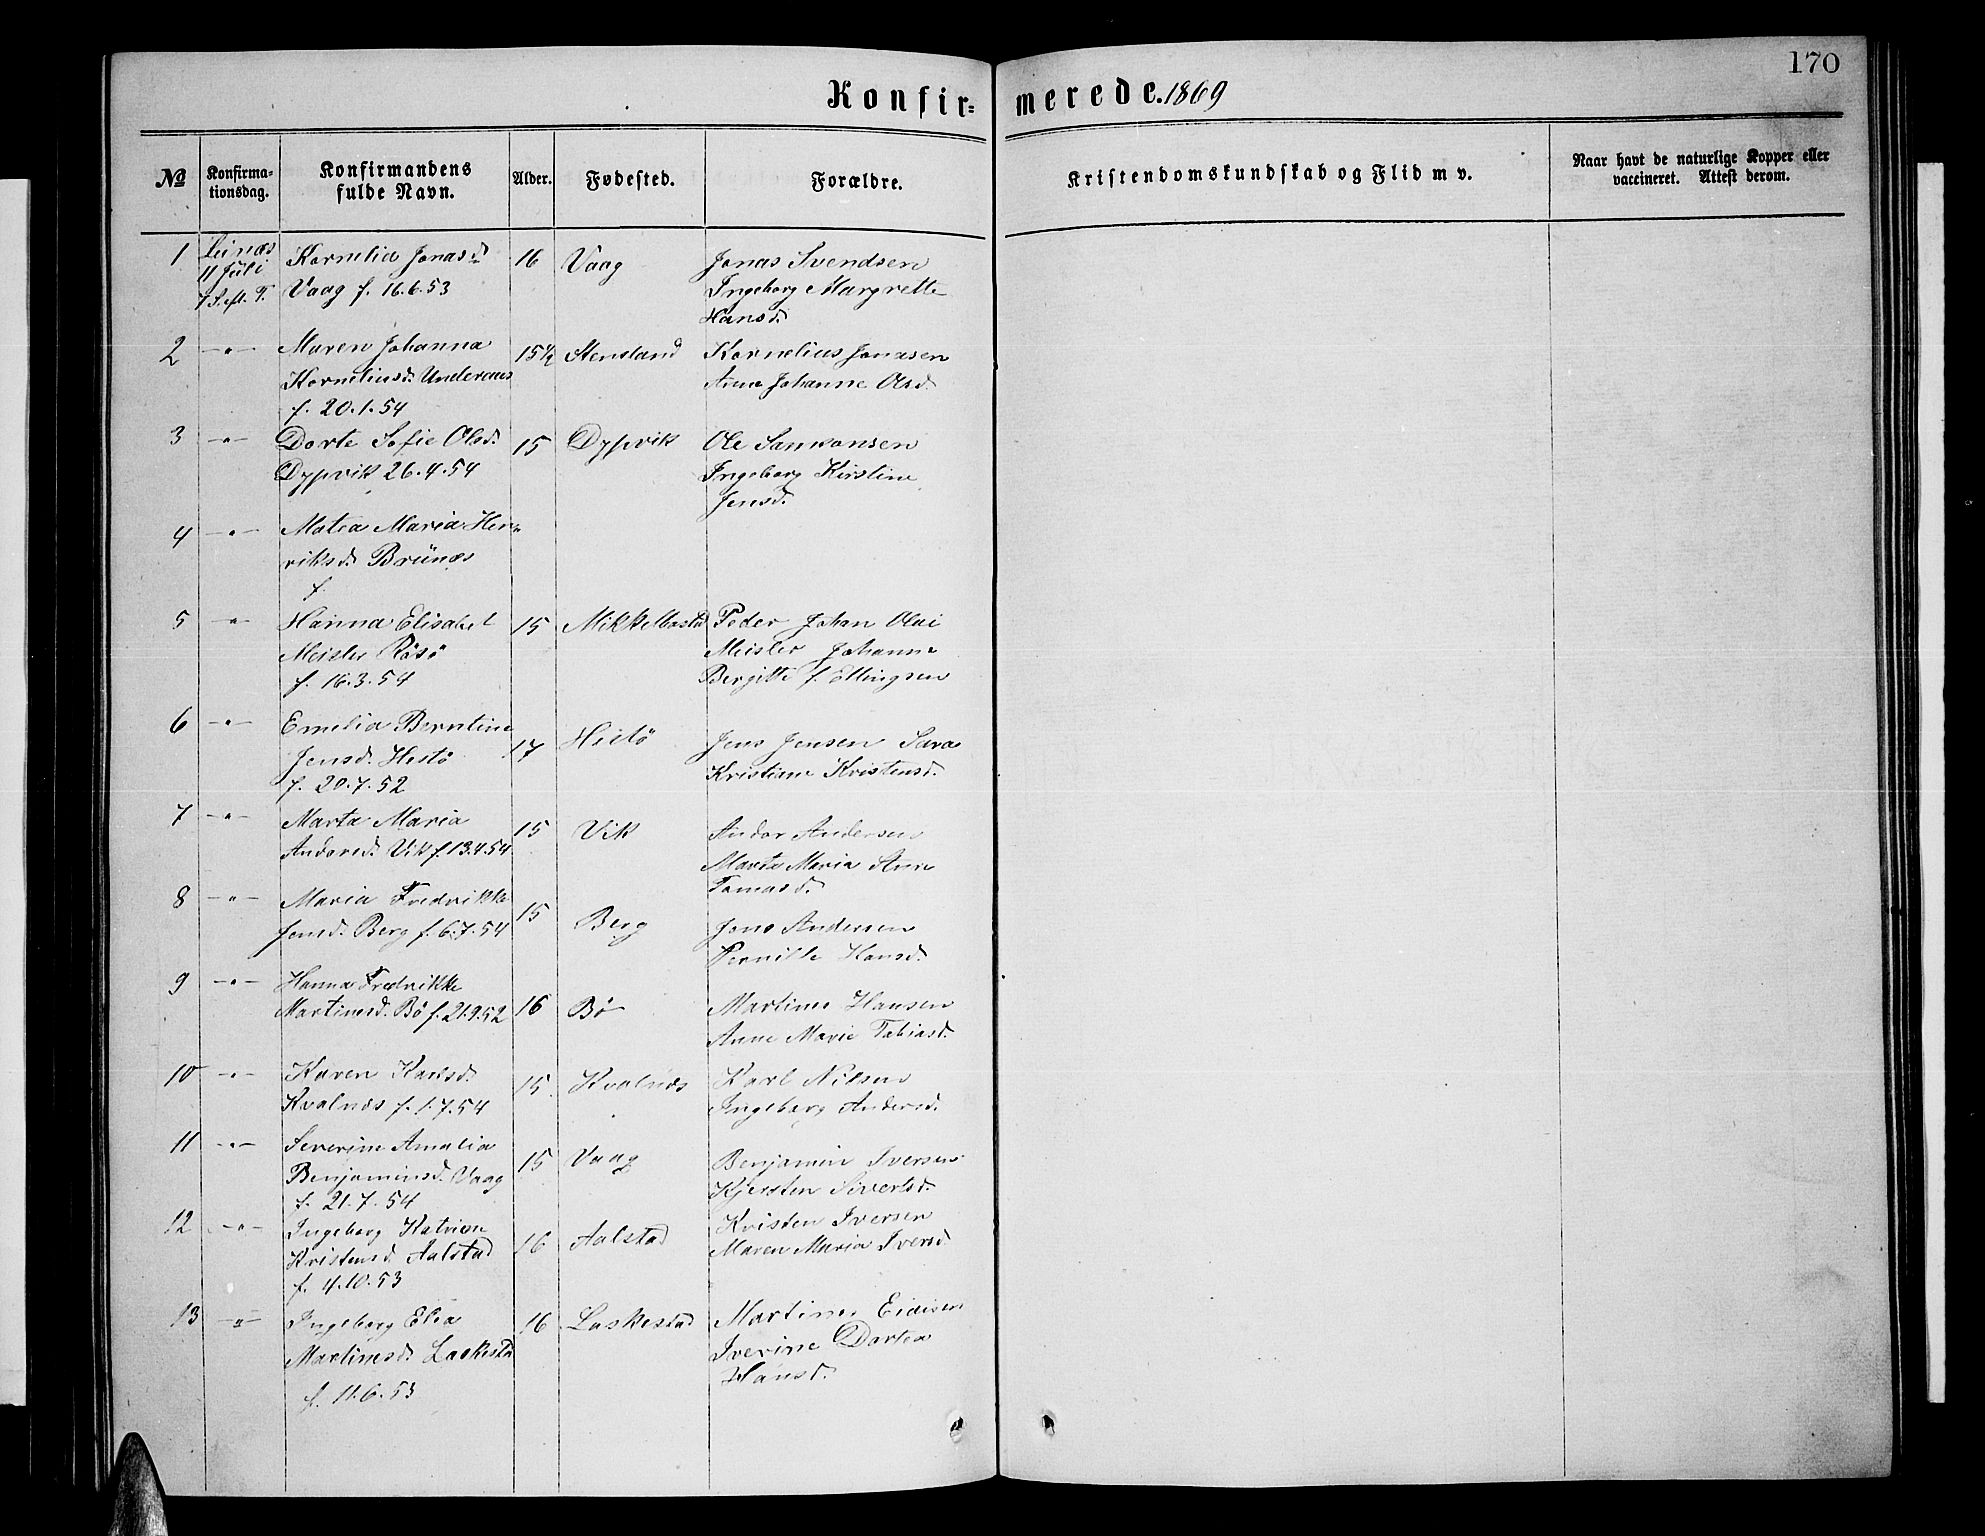 170
Konfir= merede. 1869
№ Konfirma- Konfirmandens Alder. Fødested. Forældre. Kristendomskundskab og Flid m v. Naar havt de naturlige Kopper eller
tionsdag. fulde Navn. vaccineret. Attest derom.
1 Leines Kornelia Jonasd. 16 Vaag Jonas Svendsen
11 Juli Vaag f. 16.6.53 Ingeborg Margrette
7 S. eft. T. Hansd.
2 -"- Maren Johanna 15½ Stensland Kornelius Jonasen
Korneliusd. Anna Johanne Olsd.
f. 20.1.54
3 -"- Dorte Sofie Olsd. 15 Dypvik Ole
Dypvik 26.4.54 Ingeborg Kirstine
Jensd.
4 -"- Matea Maria Hen=
riksd. Brünæs
f.
5 -"- Hanna Elisabet 15 Peder Johan Olai
Meisler Røsø Meisler Johanne
f. 16.3.54 Bergitte f. Ellingsen
6 -"- Emelia Berntine 17 Hestø Jens Jensen Sara
Jensd. Hestø Kristiane Kristensd.
f. 20.7.52
7 -"- Marta Maria 15 Vik Andor Andersen
Andored. Vik f. 13.4.54 Marta Maria Ann
Tomasd.
8 -"- Maria Fredrikke 15 Berg Jens Andersen
Jensd. Berg f. 6.7.54 Pernille Hansd.
9 -"- Hanna Fredrikke 16 Bø Martinus Hansen
Martinusd. Bø f. 21.9.52 Anne Marie Tobiasd.
10 -"- Karen Karlsd. 15 Kvalnæs Karl Nilsen
Kvalnæs f. 1.7.54 Ingeborg Andersd.
11 -"- Severine Amalia 15 Vaag Benjamin Iversen
Benjaminsd. Vaag Kjersten Sivertsd.
f. 21.7.54
12 -"- Ingeborg Katrine 16 Aalstad Kristen Iversen
Kristensd. Aalstad Maren Maria Iversd.
f. 4.10.53
13 -"- Ingeborg Elea 16 Laskestad Martinus Eidisen
Martinusd. Laskesta Iverine Dortea
f. 11.6.53 Hansd.